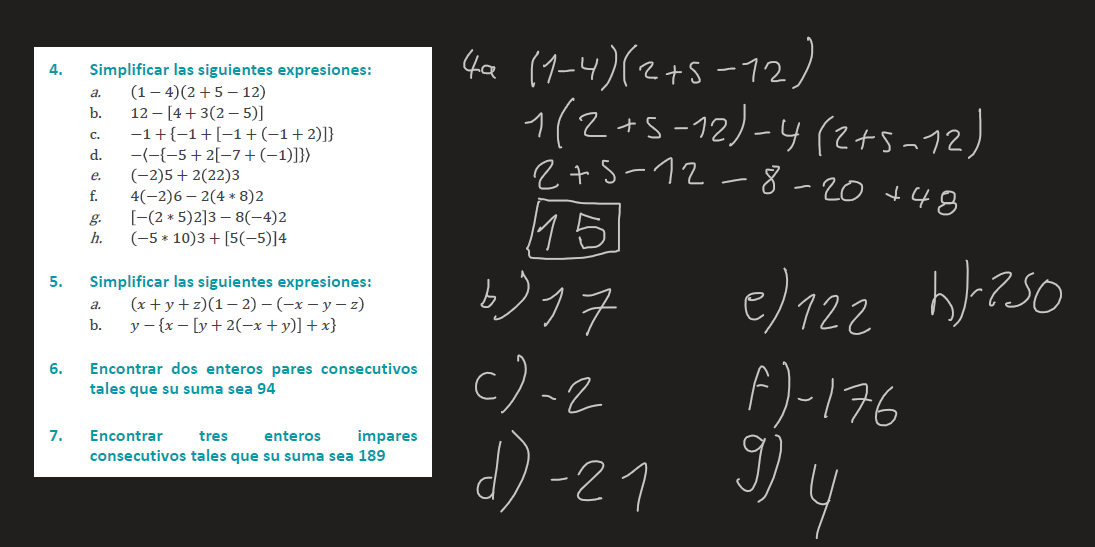 4. Simplificar las siguientes expresiones:
a. (1 − 4)(2 + 5 − 12)
b. 12 − [4 + 3(2 − 5)]
c. −1 + {−1 + [−1 + (−1 + 2)]}
d. −⟨−{−5 + 2[−7 + (−1)]}⟩
e. (−2)5 + 2(22)3
f. 4(−2)6 − 2(4 ∗ 8)2
g. [−(2 ∗ 5)2]3 − 8(−4)2
h. (−5 ∗ 10)3 + [5(−5)]4
5. Simplificar las siguientes expresiones:
a. (x + y + z)(1 − 2) − (−x − y − z)
b. y − {x − [y + 2(−x + y)] + x}
6. Encontrar dos enteros pares consecutivos
tales que su suma sea 94
7. Encontrar tres enteros impares
consecutivos tales que su suma sea 189
4a (1−4)(2+5−12)
1(2+5−12)−4(2+5−12)
2+5−12−8−20+48
15
b) 17
c) −2
d) −21
e) 122
f) −176
g) y
h) −250